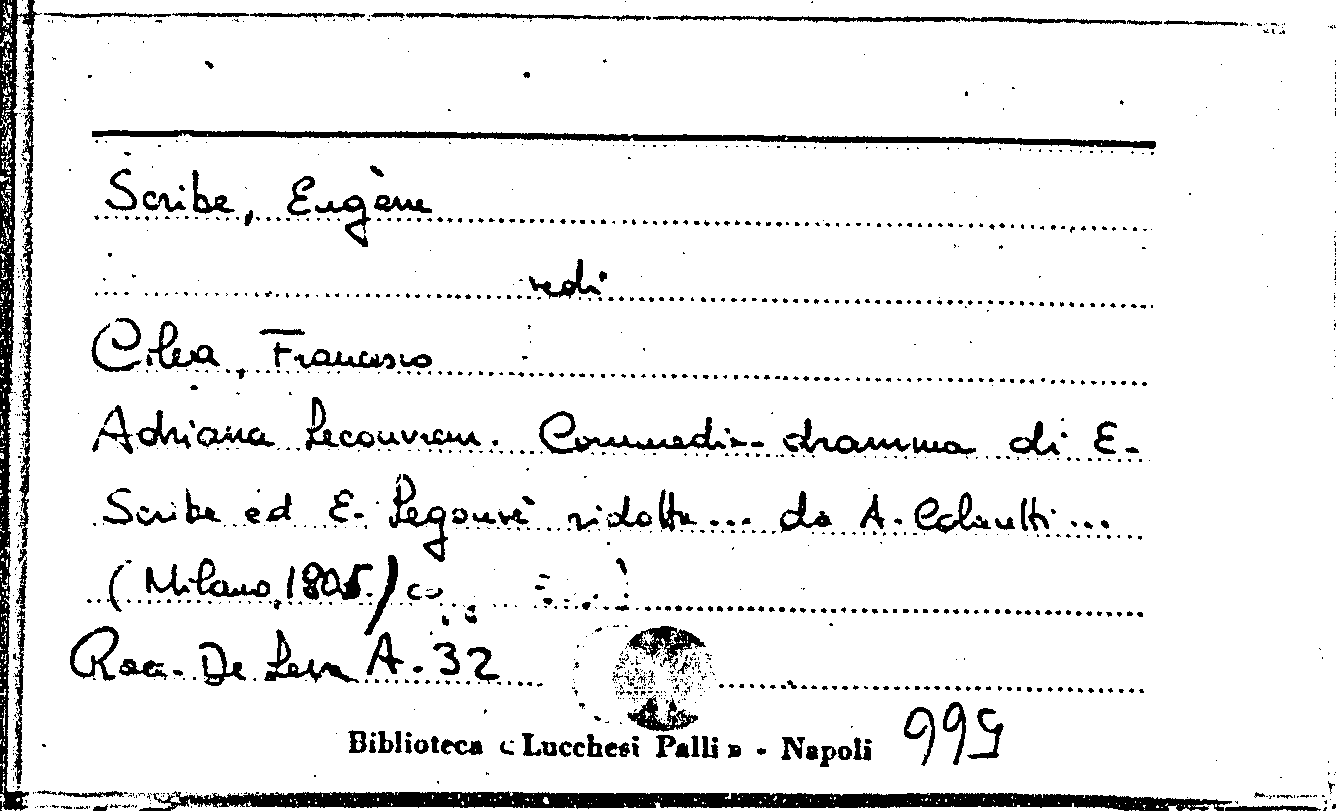 Scribe, Eugène
vedi
Cilea, Francesco
Adriana Lecouvreur. Commedia-dramma di E.
Scribe ed E. Legouvè ridotta... da A. Colautti...
(Milano,
Racc. De Leva A. 32
Biblioteca « Lucchesi Palli » - Napoli